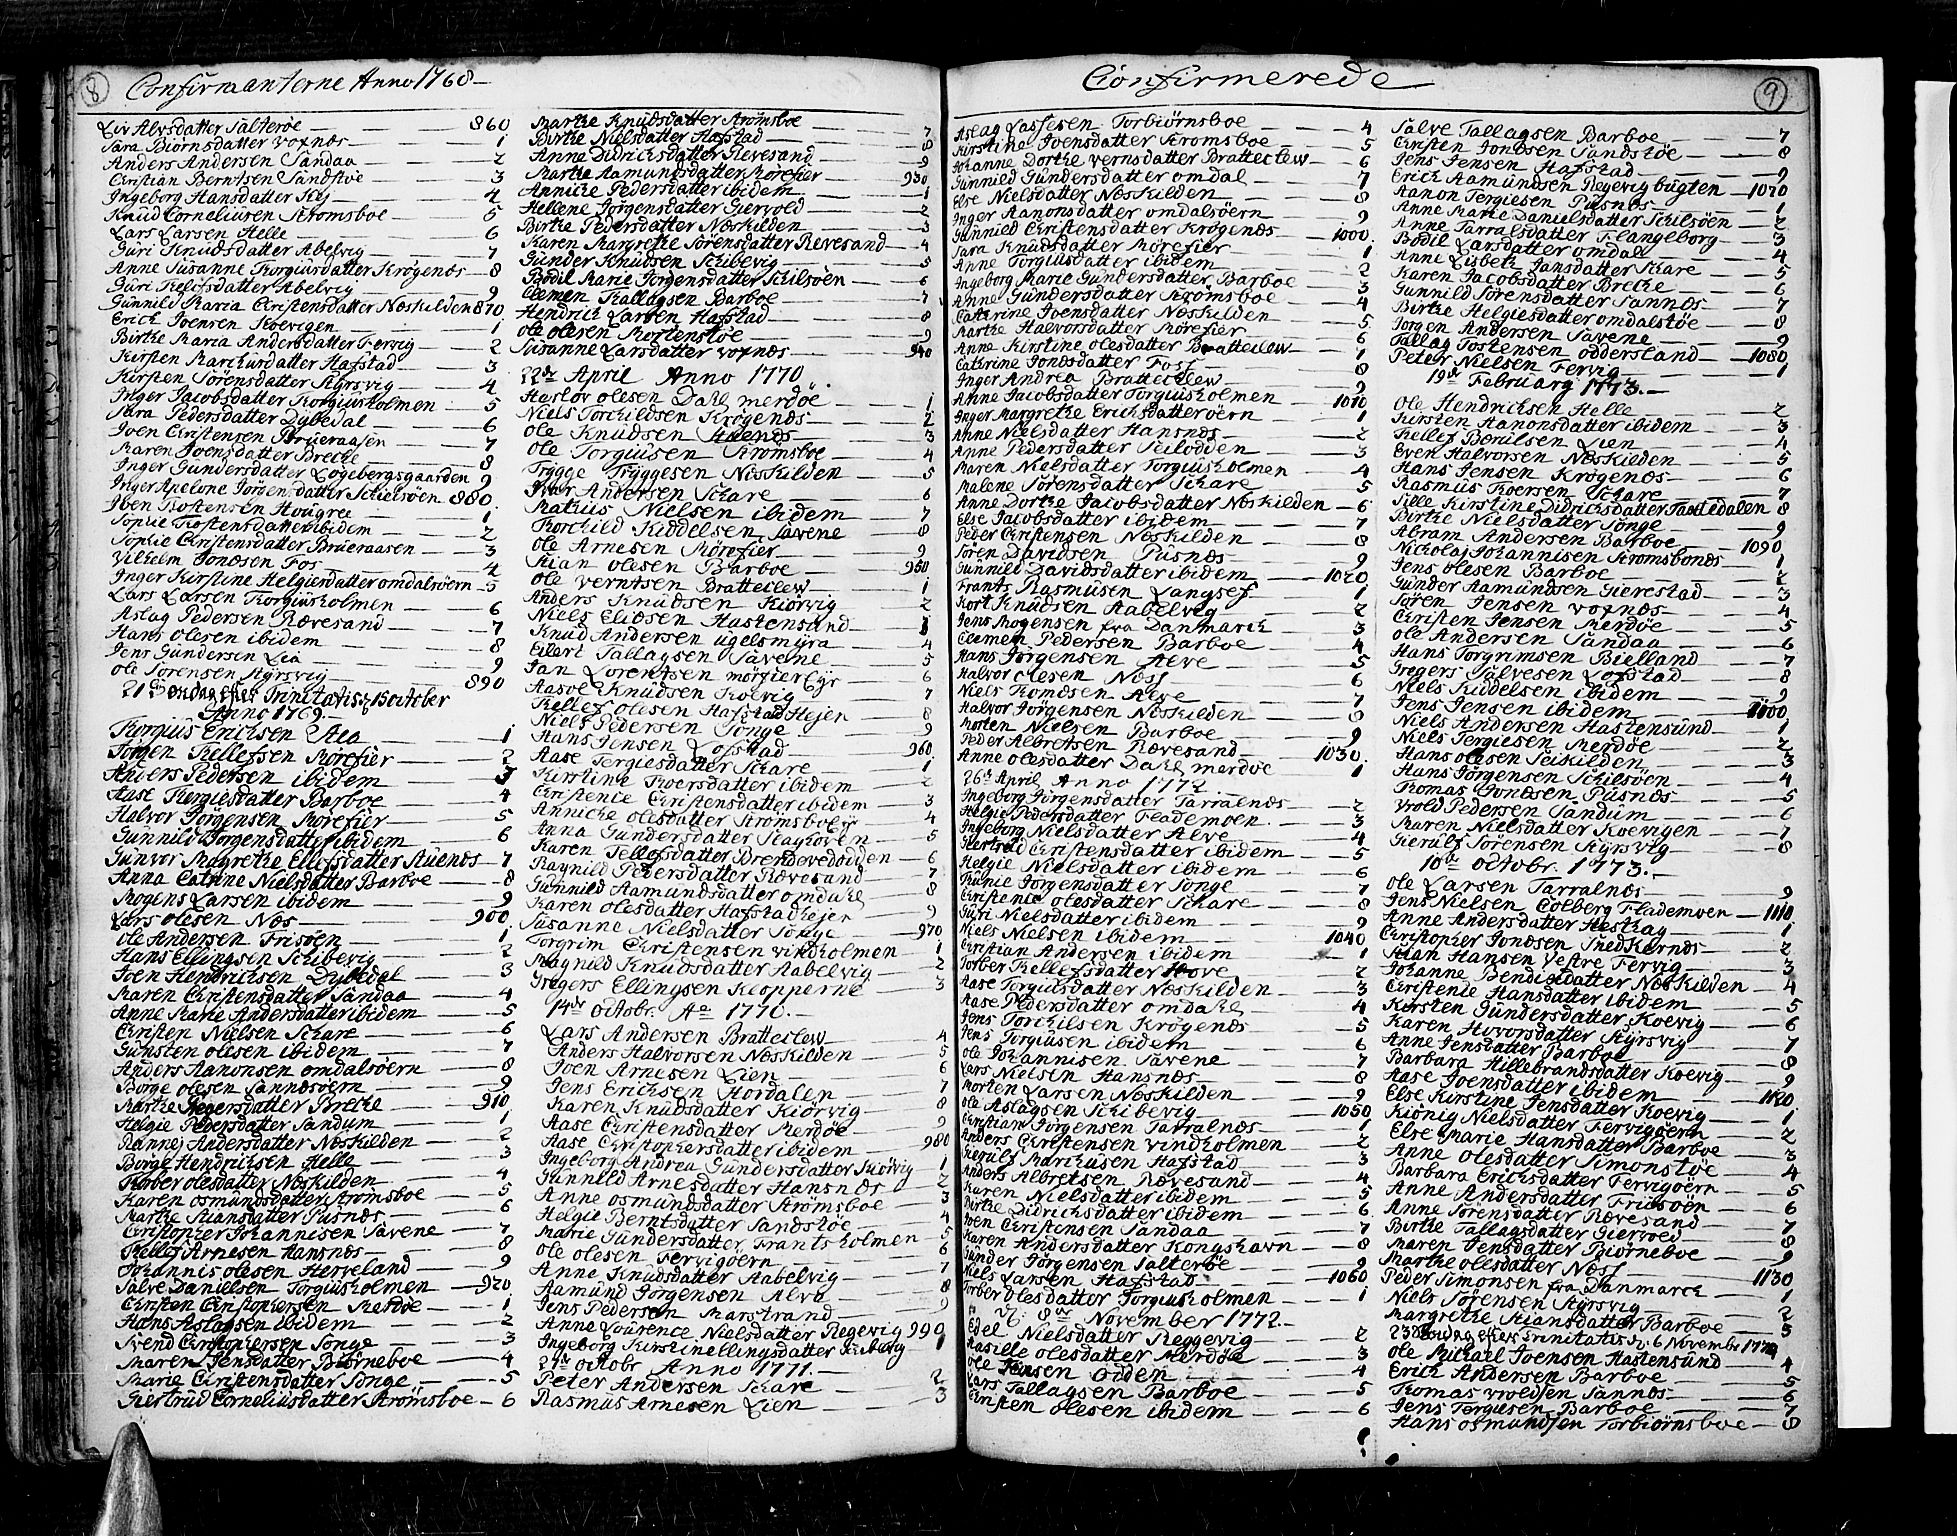 8 Confirmanterne Anno 1768 —
Liv Alvsdatter Salterøe — 860
Sara Biørnsdatter voxnæs — 1
Anders Andersen Sandaa — 2
Christian Berntsen Sandstøe — 3
Ingeborg Hansdatter — 4
Knud Corneliusen Strømsboe — 5
Lars Larsen Helle — 6
Guri Knudsdatter Abelvig — 7
Anne Susanne Torgiusdatter Krøgenæs — 8
Guri Kelefsdatter Abelvig — 9
Gunnild Maria Christensdatter Næskilden 870
Erich Joensen Koevigen — 1
Birthe Maria Andersdatter Fervig — 2
Kirsten Marchusdatter Hafstad — 3
Kirsten Sørensdatter Styrsvig — 4
Inger Jacobsdatter Torgiusholmen — 5
Sara Pedersdatter Dybedal — 6
Joen Christensen Brueraasen — 7
Maren Joensdatter Brecke — 8
Inger Gundersdatter Løgebergsgaarden 9
Inger Apelone Jørgensdatter Schilsøen 880
Iben Tostensen Hougree — 1
Sophie Tostensdatter ibidem — 2
Sophie Christensdatter Brueraasen — 3
Vilhelm Jonasen Fos — 4
Inger Kirstine Helgiesdatter omdalsøern — 5
Lars Larsen Torgiusholmen — 6
Aslag Pedersen Rævesand — 7
Hans Olesen ibidem — 8
Jens Gundersen Lia — 9
Ole Sørensen Styrsvig — 890
21de Søndag efter Trinitatis 15 october
Anno 1769 —
Torgius Erichsen Stea — 1
Jørgen Kellefsen Mørefier — 2
Anders Pedersen ibidem — 3
Aase Tergiesdatter Barboe — 4
Halvor Jørgensen Mørefier — 5
Gunnild Jørgensdatter ibidem — 6
Gunvor Magrethe Ellefsdatter Stuenæs — 7
Anna Catrine Nielsdatter Barboe — 8
Mogens Larsen ibidem — 9
Lars Olesen Næs — 900
Ole Andersen Frisøen — 1
Hans Ellingsen Schibevig — 2
Joen Hendrichsen Dybedal — 3
Karen Christensdatter Sandaa — 4
Anne Marie Andersdatter ibidem — 5
Christen Nielsen Schare — 6
Gunsten Olesen ibidem — 7
Anders Aanonsen omdalsøern — 8
Børge Olesen Sannæsøern — 9
Marthe Gregersdatter Brecke — 910
Helgie Pedersdatter Sandum — 1
Rannei Andersdatter Næskilden — 2
Børge Hendrichsen Helle — 3
Torber Olesdatter Næskilden — 4
Karen Osmundsdatter Strømsboe — 5
Marthe Stiansdatter Pusnæs — 6
Christopher Johannisen Savene — 7
Kellef Arnesen Hansnæs — 8
Johannis Olesen Herveland — 9
Salve Danielsen Torgiusholmen — 920
Christen Christophersen Merdøe — 1
Hans Aslagsen ibidem — 2
Svend Christophersen Songe — 3
Maren Jensdatter Biørneboe — 4
Marie Christensdatter Songe — 5
Giertrud Corneliusdatter Strømsboe — 6
Marthe Knudsdatter Strømsboe — 7
Birthe Nielsdatter Hafstad — 8
Anne Didrichsdatter Revesand — 9
Marthe Aamundsdatter Mørefier — 930
Annicke Pedersdatter ibidem — 1
Hellene Jørgensdatter Giervold — 2
Birthe Pedersdatter Næskilden — 3
Karen Margrethe Sørensdatter Revesand — 4
Gunder Knudsen Schibevig — 5
Bodil Marie Jørgensdatter Schilsøen — 6
Clemen Tallagsen Barboe — 7
Hendrich Larsen Hafstad — 8
Ole Olesen Mortenstøe — 9
Susanne Larsdatter voxnæs — 940
22de April Anno 1770
Haslov Olesen Dahl merdøe — 1
Niels Torchildsen Krøgenæs — 2
Ole Knudsen Stuenæs — 3
Ole Torguisen Strømsboe — 4
Trygge Tryggesen Næskilden — 5
Ivar Andersen Schare — 6
Mathius Nielsen ibidem — 7
Torchild Kiddelsen Savene — 8
Ole Arnesen Mørefier — 9
Stian Olesen Barboe — 950
Ole Verntsen Bratteclew — 1
Anders Knudsen Kiørvig — 2
Niels Eliæsen Hastensund — 3
Knud Andersen ugelsmyra — 4
Eilert Tallagsen Savene — 5
Jan Lorentsen mørfier Eje — 6
Aasoe Knudsen Koevig — 7
Kellef Olesen Hafstad Hejen — 8
Niels Pedersen Songe — 9
Hans Jensen Lofstad — 960
Aase Tergiesdatter Schare — 1
Kirstine Thoersdatter ibidem — 2
Christenie Christensdatter ibidem — 3
Annicke Olesdatter Strømsboe — 4
Anna Gundersdatter — 5
Karen Tellefsdatter Brendevedodden — 6
Ragnild Pedersdatter Rævesand — 7
Gunnild Aamundsdatter omdahl — 8
Karen Olesdatter Hafstad hejen — 9
Susanne Nielsdatter Songe — 970
Torgrim Christensen vindholmen — 1
Magnild Knudsdatter Aabelvig — 2
Gregers Ellingsen Klopperne — 3
14de octobr. Ao 1770. —
Lars Andersen Bratteclew — 4
Anders Halvorsen Næskilden — 5
Joen Arnesen Lien — 6
Jens Erichsen Hordalen — 7
Karen Knudsdatter Kiørvig — 8
Aase Christensdatter Merdøe — 9
Aase Christophersdatter ibidem — 980
Ingeborg Andrea Gundersdatter — 1
Gunnild Arnesdatter Hansnæs — 2
Anne Osmundsdatter Strømsboe — 3
Helgie Berntsdatter Sandstøe — 4
Marie Gundersdatter Frantsholmen — 5
Ole Olesen Fervigøern — 6
Anne Knudsdatter Aabelvig — 7
Aamund Jørgensen Alve — 8
Jens Pedersen Marstrand — 9
Anne Lourence Nielsdatter Regevig 990
Ingeborg Kirstine Ellingsdatter — 1
27de octobr Anno 1771. —
Peter Andersen Schare — 2
Rasmus Arnesen Lien — 3
Confirmerede 9
Aslag Lassesen Torbiørnsboe — 4
Kirstine Joensdatter Strømsboe — 5
Johanne Dorthe vernsdatter Bratteclew — 6
Gunnild Gundersdatter omdal — 7
Else Nielsdatter Næskilden — 8
Inger Aanonsdatter omdalsøern — 9
Gunnild Christensdatter Krøgenæs — 1000
Sara Knudsdatter Mørefier — 1
Anne Torgiusdatter ibidem — 2
Ingeborg Marie Gundersdatter Barboe — 3
Anne Gundersdatter Strømsboe — 4
Catherine Joensdatter Næskilden — 5
Marthe Halvorsdatter Mørefier — 6
Anne Kirstine Olesdatter Bratteclew — 7
Catrine Jonæsdatter Foss — 8
Inger Andrea Bratteclew — 9
Anne Jacobsdatter Torgiusholmen — 1010
Inger Margrethe Erichsdatter øern — 1
Anne Nielsdatter Hansnæs — 2
Anne Pedersdatter Scilodden — 3
Maren Nielsdatter Torgiusholmen — 4
Malene Sørensdatter Schare — 5
Anne Dorthe Jacobsdatter Næskilden — 6
Else Jacobsdatter ibidem — 7
Peder Christensen Næskilden — 8
Søren Davidsen Pusnæs — 9
Gunnild Davidsdatter ibidem — 1020
Frants Rasmusen Langsef — 1
Kort Knudsen Aabelvig — 2
Jens Mogensen fra Danmarch — 3
Clemen Pedersen Barboe — 4
Hans Jørgensen Alve — 5
Halvor Olesen Næss — 6
Niels Tomæsen Alve — 7
Halvor Jørgensen Næskilden — 8
Morten Nielsen Barboe — 9
Peder Albretsen Rævesand — 1030
Anne Olesdatter Dahl merdøe — 1
26de April Anno 1772
Ingeborg Jørgensdatter Tarralnæs — 2
Helgie Pedersdatter Flademoen — 3
Ingeborg Nielsdatter Alve — 4
Giertrud Christensdatter ibidem — 5
Helgie Nielsdatter ibidem — 6
Runie Jørgensdatter Songe — 7
Christenie Olesdatter Schare — 8
Guri Nielsdatter ibidem — 9
Niels Nielsen ibidem — 1040
Christian Andersen ibidem — 1
Torber Kellefsdatter Hove — 2
Aase Torgiusdatter Næskilden — 3
Aase Pedersdatter omdahl — 4
Jens Torchilsen Krøgenæs — 5
Jens Torgiusen ibidem — 6
Ole Johannisen Savene — 7
Lars Nielsen Hansnæs — 8
Morten Larsen Næskilden — 9
Ole Aslagsen Schibevig — 1050
Christian Jørgensen Tarralnæs — 1
Anders Christensen vindholmen — 2
Gierulf Marchusen Hafstad — 3
Anders Albretsen Rævesand — 4
Karen Nielsdatter ibidem — 5
Birthe Didrichsdatter ibidem — 6
Joen Christensen Sandaa — 7
Karen Andersdatter Kongshavn — 8
Gunder Jørgensen Salterøe — 9
Niels Larsen Hafstad — 1060
Torber Olesdatter Torgiusholmen — 1
d. 8de November 1772. —
Edel Nielsdatter Reggevig — 2
Maselle Olesdatter Merdøe — 3
Ole Jensen Odden — 4
Lars Tallagsen Barboe — 5
Christen Olesen ibidem — 6
Salve Tallagsen Barboe — 7
Christen Jonæsen Sandstøe — 8
Jens Jensen Hafstad — 9
Erich Aamundsen Regevig bugten — 1070
Aanon Tergiesen Pusnæs — 1
Anne Marie Danielsdatter Schilsøen — 2
Anne Tarralsdatter Flangeborg — 3
Bodil Larsdatter omdal — 4
Anne Lisbeth Jansdatter Schare — 5
Karen Jacobsdatter Brecke — 6
Gunnild Sørensdatter Sannæs — 7
Birthe Helgiesdatter omdalstøe — 8
Jørgen Andersen Savene — 9
Tallag Tostensen oddersland — 1080
Peter Nielsen Fervig — 1
19de February 1773. —
Ole Hendrichsen Helle — 2
Kirsten Aanonsdatter ibidem — 3
Kellef Boeulsen Lien — 4
Even Halvorsen Næskilden — 5
Hans Jensen Krøgenæs — 6
Rasmus Thoersen Schare — 7
Sille Kirstine Didrichsdatter Taaledalen 8
Birthe Nielsdatter Songe — 9
Abram Andersen Barboe — 1090
Nickolaj Johannisen Strømsbonæs — 1
Jens Olesen Barboe — 2
Gunder Aamundsen Gierestad — 3
Søren Jensen voxnæs — 4
Christen Jensen Merdøe — 5
Ole Andersen Sandaa — 6
Hans Torgrimsen Bielland — 7
Gregers Salvesen Lofstad — 8
Niels Kiddelsen ibidem — 9
Jens Jensen ibidem — 1100
Niels Andersen Hastensund — 1
Niels Tergiesen Merdøe — 2
Hans Olesen Scikilden — 3
Hans Jørgensen Schilsøen — 4
Thomas Jonæsen Pusnæs — 5
Vrold Pedersen Sandum — 6
Maren Nielsdatter Koevigen — 7
Gierulf Sørensen Styrsvig — 8
10de octobr. 1773. —
Ole Larsen Tarralnæs — 9
Jens Nielsen Colberg Flademoen — 1110
Anne Andersdatter Heshag — 1
Christopher Jonæsen Snedkernæs — 2
Stian Hansen Vestre Fervig — 3
Johanne Bendixdatter Næskilden — 4
Christenie Hansdatter ibidem — 5
Kirsten Gundersdatter Koevig — 6
Karen Hovorsdatter Styrsvig — 7
Anne Jensdatter Barboe — 8
Barbara Hillebrandsdatter Koevig — 9
Aase Joensdatter ibidem — 1120
Else Kirstine Jensdatter Koevig — 1
Kiønig Nielsdatter Fervigøern — 2
Else Marie Hansdatter Barboe — 3
Anne Olesdatter Simonstøe — 4
Barbara Erichsdatter Fervigøern — 5
Anne Andersdatter Friesøen — 6
Anne Sørensdatter Rævesand — 7
Birthe Tallagsdatter Giervold — 8
Maren Jensdatter Biørneboe — 9
Marthe Olesdatter Næss — 1130
Peder Simonsen fra Danmarch — 1
Niels Sørensen Styrsvig — 2
Margrethe Stiansdatter Barboe — 3
23de Søndag efter Trinitatis d. 6 November 1774
Ole Michael Joensen Hastensund — 4
Erich Andersen Barboe — 5
Thomas vroldsen Sannæs — 6
Jens Tergiesen Barboe — 7
Hans Osmundsen Torbiørnsboe — 8